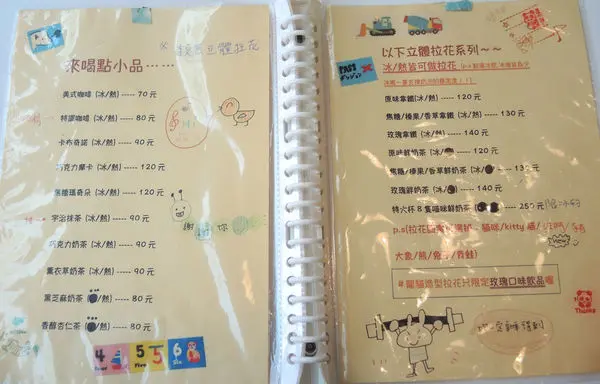 來喝點小品……
美式咖啡 (冰/熱) ----- 70 元
特調咖啡 (冰/熱) ----- 80 元
卡布奇諾 (冰/熱) ----- 90 元
巧克力摩卡 (冰/熱) ----- 120 元
焦糖瑪奇朵 (冰/熱) ----- 120 元
宇治抹茶 (冰/熱) ----- 90 元
巧克力奶茶 (冰/熱) ----- 90 元
薰衣草奶茶 (冰/熱) ----- 90 元
黑芝麻奶茶 ( /熱) ----- 80 元
香醇杏仁茶 ( /熱) ----- 80 元
謝謝你
4 5 5 6
Five Six
以下立體拉花系列~~
冰/熱皆可做拉花
原味拿鐵(冰/熱) ----- 120 元
焦糖/榛果/香草拿鐵(冰/熱) ----- 130 元
玫瑰拿鐵(冰/熱) ----- 140 元
原味鮮奶茶(冰/ ) ----- 120 元
焦糖/榛果/香草鮮奶茶(冰/ ) ----- 130 元
玫瑰鮮奶茶(冰/ ) ----- 140 元
特大杯 8 隻喵咪鮮奶茶 ----- 250 元
貓咪/kitty 貓/
大象/熊/兔子/青蛙)
new
#龍貓造型拉花只限定玫瑰口味飲品喔
Thanks